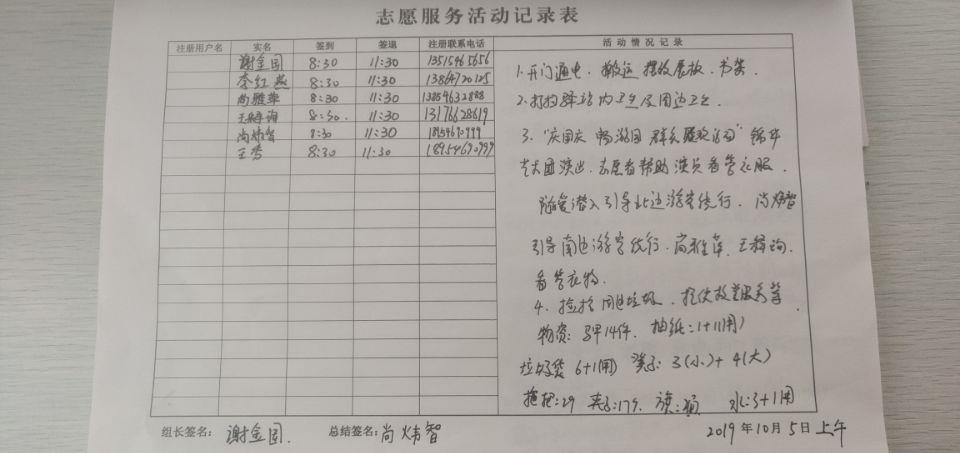 志愿服务活动记录表
注册用户名 实名 签到 签退 注册联系电话 活动情况记录
谢金国 8:30 11:30 13515465656
李红燕 8:30 11:30 13864720125
尚雅萍 8:30 11:30 13854632888
王 8:30. 11:30 13176628619
尚炜智 8:30 11:30 18954670999
王秀 8:30 11:30 18954670999
1.开门通电，搬运 摆放展板，书架．
2.打扫驿站内卫生及周边卫生．
3．“庆国庆 畅游园 群众” 
艺术团演出，志愿者帮助演员看管衣服．
引导北边游客绕行．尚炜智
引导南边游客绕行．尚雅萍，王
看管衣物．
4．捡拾周边垃圾．提供放置服务等
物资：马甲14件．抽纸：1+1(用)
垃圾袋 6+1(用) 凳子：3(小)+4(大)
拖把：2个 夹子：17个．旗： 水：3+1用
组长签名：谢金国． 总结签名：尚炜智 2019年10月5日上午